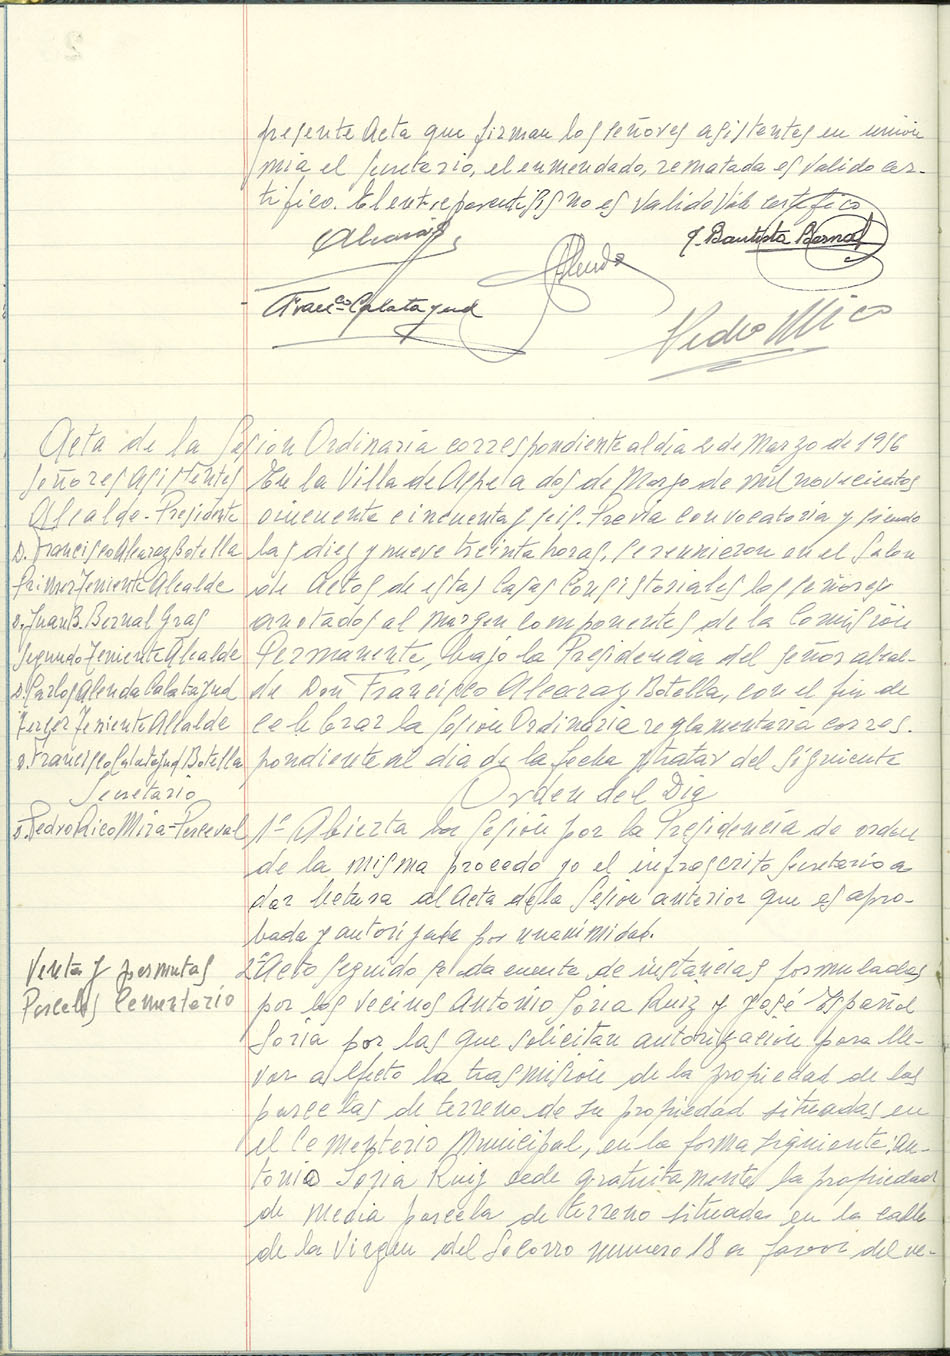 presente Acta que firman los señores asistentes en unión
mia el Secretario, el enmendado, rematada es valido cer-
tifico. El entreparentesis no es valido Vale certifico
Alcaraz
J. Bautista Bernal
Alenda
Franco Calatayud
Pedro Mico
Acta de la Sesion Ordinaria correspondiente al dia 2 de Marzo de 1956
Señores Asistentes
Alcalde-Presidente
D. Francisco Alcaraz Botella
Primer Teniente Alcalde
D. Juan B. Bernal Gras
Segundo Teniente Alcalde
D. Carlos Alenda Calatayud
Tercer Teniente Alcalde
D. Francisco Calatayud Botella
Secretario
D. Pedro Rico Mira-Perceval
En la Villa de Aspe a dos de Marzo de mil novecientos
cincuenta y seis. Previa convocatoria y siendo
las diez y nueve treinta horas, se reunieron en el Salon
de Actos de estas Casas Consistoriales los señores
anotados al margen componentes de la Comisión
Permanente, bajo la Presidencia del señor alcal-
de Don Francisco Alcaraz Botella, con el fin de
celebrar la Sesion Ordinaria reglamentaria corres-
pondiente al dia de la fecha y tratar del siguiente
Orden del Dia
1º Abierta la Sesión por la Presidencia de orden
de la misma procedo yo el infrascrito Secretario a
dar lectura al Acta de la Sesion anterior que es apro-
bada y autorizada por unanimidad.
Venta y permutas
Parcelas Cementerio
2º Acto seguido se da cuenta de instancias formuladas
por los vecinos Antonio Soria Ruiz y José Español
Soria por las que solicitan autorización para lle-
var a efecto la trasmisión de la propiedad de las
parcelas de terreno de su propiedad situadas en
el Cementerio Municipal, en la forma siguiente: An-
tonio Soria Ruiz cede gratuitamente la propiedad
de media parcela de terreno situada en la calle
de la Virgen del Socorro numero 18 a favor del ve-